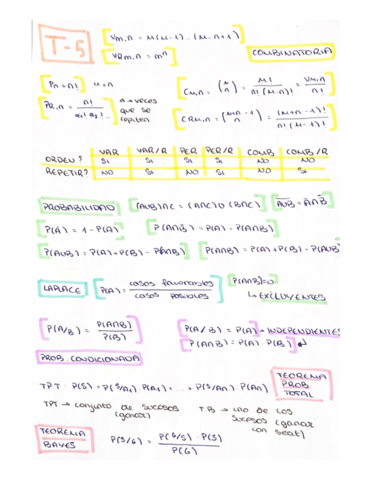 T-5
Vm,n = m(m-1)...(m-n+1)
VRm,n = mⁿ
COMBINATORIA
Pn = n!
PR,n = n! / a₁! a₂! ...
a → veces que se repiten
Cm,n = (m n) = m! / n!(m-n)! = Vm,n / n!
CRm,n = (m+n-1 n) = (m+n-1)! / n!(m-1)!
VAR VAR/R PER PER/R COMB COMB/R
ORDEN? SI SI SI SI NO NO
REPETIR? NO SI NO SI NO SI
PROBABILIDAD
(AUB)∩C = (A∩C)U(B∩C)
P(A) = 1 - P(A)
P(A∩B) = P(A) - P(A∩B)
P(AUB) = P(A)+P(B) - P(A∩B)
P(A∩B) = P(A)+P(B) - P(AUB)
LAPLACE
P(A) = casos favorables / casos posibles
P(A∩B)=0
↳ EXCLUYENTES
P(A/B) = P(A∩B) / P(B)
P(A/B) = P(A) → INDEPENDIENTES
P(A∩B) = P(A)·P(B)
PROB. CONDICIONADA
TEOREMA PROB TOTAL
TPT · P(S) = P(S/A₁) P(A₁) + ... + P(S/An) P(An)
TPT → conjunto de sucesos (ganar)
TB → uno de los sucesos (ganar con seat)
TEOREMA BAYES
P(S/G) = P(G/S) · P(S) / P(G)